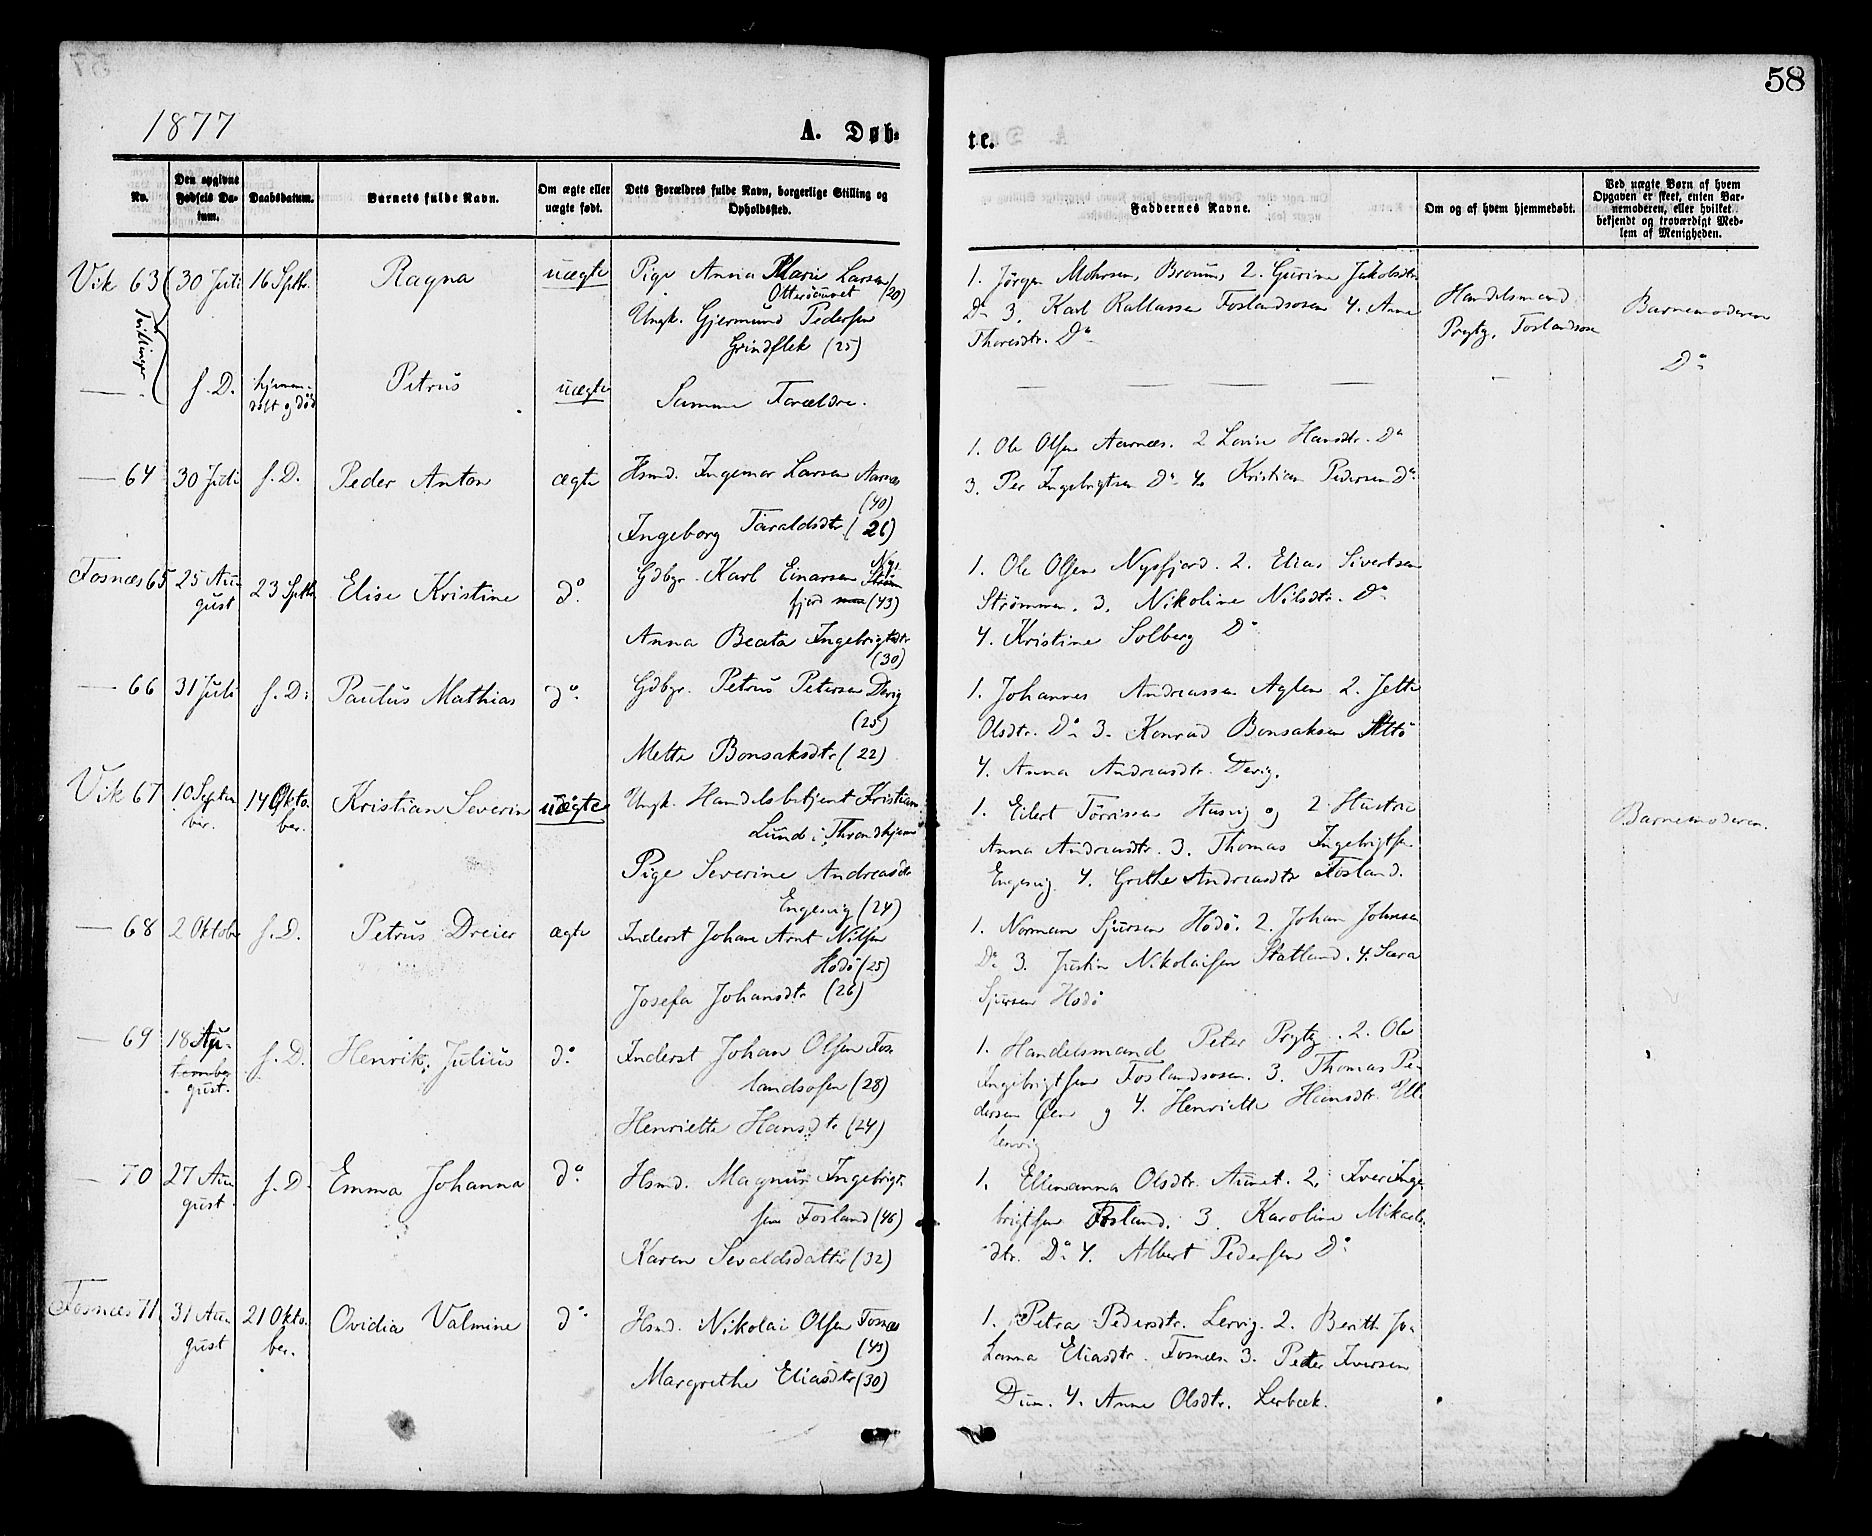 58
1877
A. Døb-
te.
No.
Den opgivne Fødsels Da-
tum.
Daabsdatum.
Barnets fulde Navn.
Om ægte eller
uægte født.
Dets Forældres fulde Navn, borgerlige Stilling og
Opholdssted.
Faddernes Navne.
Om og af hvem hjemmedøbt.
Ved uægte Børn af hvem
Opgaven er skeet, enten Bar-
nemoderen, eller hvilket
bekjendt og troværdigt Med-
lem af Menigheden.
Vik 63
Tvillinger
30 Juli
16 Sptbr.
Ragna
uægte
Pige Anna Marie Larsen
Otteröunet (20)
Ungk. Gjermund Pedersen
Grindflek (25)
1. Jörgen Mohrsen Braunes 2. Gurine Jakobsdtr
Do 3. Karl Rallassen Foslandsosen 4. Anne
Thoresdtr. Do
Handelsmand
Prytz, Foslandsose
Barnemoderen
s. D.
hjemme-
döbt og död
Petrus
uægte
Samme Forældre.
Do
64
30 Juli
s. D.
Peder Anton
ægte
Hsmd. Ingemar Larsen Aarnæs
(40)
Ingeborg Taraldsdtr. (26)
1. Ole Olsen Aarnæs. 2 Lovise Hansdtr. Do
3. Per Ingebrigtsen Do 4. Kristian Pedersen Do
Fosnæs 65
25 Au-
gust
23 Sptbr
Elise Kristine
do
Gdbgr. Karl Einarsen Nys-
fjord (43)
Anna Beata Ingebrigtsdtr
(30)
1. Ole Olsen Nysfjord. 2. Elias Sivertsen
Strømmen. 3. Nikoline Nilsdtr. Do
4. Kristine Solberg Do
66
31 Juli
s. D.
Paulus Mathias
do.
Gdbgr. Petrus Petersen Devig
(25)
Mette Bonsaksdtr (22)
1. Johannes Andreassen Aglen 2. Jette
Olsdtr. Do 3. Konrad Bonsaksen
4. Anna Andreasdtr. Devig.
Vik 67
10 Septem-
ber.
14 Okto-
ber.
Kristian Severin
uægte
Ungk. Handelsbetjent Kristian
Lund i Throndhjem
Pige Severine Andreasdtr
Engesvig (24)
1. Eilert Törrissen Husvig og 2 Hustru
Anna Andreasdtr. 3. Thomas Ingebrigtsen
Engesvig 4. Grethe Andreasdtr Fosland.
Barnemoderen.
68
2 Oktober
s. D.
Petrus Dreier
ægte
Inderst Johan Arnt Nilsen
Hodö (25)
Josefa Johansdtr (26)
1. Norman Sjursen Hodö. 2. Johan Johnsen
Do 3. Justin Nikolaisen Statland. 4. Sara
Sjursen Hodö
69
18 Au-
tember
gust.
s. D.
Henrik Julius
do.
Inderst Johan Olsen Fos-
landsosen (28)
Henriette Hansdtr (24)
1. Handelsmand Peter Prytz. 2. Ole
Ingebrigtsen Foslandsosen. 3. Thomas Pe-
dersen Øen og 4. Henriette Hansdtr. Ell-
70
27 Au-
gust
s. D.
Emma Johanna
do.
Hsmd. Magnus Ingebrigt-
sen Fosland (46)
Karen Sevaldsdatter (32)
1. Ellenanna Olsdtr. Aunet. 2. Iver Inge-
brigtsen Fosland. 3. Karoline Mikaels-
dtr. Do 4. Albert Pedersen Do
Fosnæs 71
31 Au-
gust
21 Okto-
ber.
Ovidia Valmine
do.
Hsmd. Nikolai Olsen Fosnæs
(43)
Margrethe Eliasdtr (30)
1. Petra Pedersdtr. Lervig. 2. Berith Jo-
hanna Eliasdtr. Fosnæs. 3. Peder Iversen
Duun. 4. Anne Olsdtr. Lerbæk.